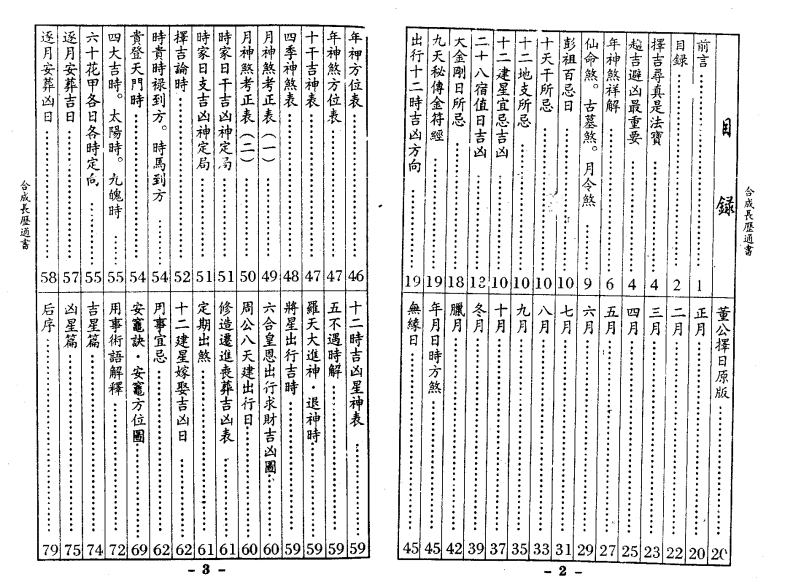 合成長歷通書
目錄
前言 1
目錄 2
擇吉尋真是法寶 4
趨吉避凶最重要 4
年神煞祥解 6
仙命煞。古墓煞。月令煞 9
彭祖百忌日 10
十天干所忌 10
十二地支所忌 10
十二建星宜忌吉凶 10
二十八宿值日吉凶 12
大金剛日所忌 18
九天秘傳金符經 19
出行十二時吉凶方向 19
董公擇日原版 20
正月 20
二月 22
三月 23
四月 25
五月 27
六月 29
七月 31
八月 33
九月 35
十月 37
冬月 39
臘月 42
年月日時方煞 45
無緣日 45
- 2 -
年神方位表 46
年神煞方位表 47
十干吉神表 47
四季神煞表 48
月神煞考正表(一) 49
月神煞考正表(二) 50
時家日干吉凶神定局 51
時家日支吉凶神定局 51
擇吉論時 52
時貴時祿到方。時馬到方 54
貴登天門時 54
四大吉時。太陽時。九醜時 55
六十花甲各日各時定向 55
逐月安葬吉日 57
逐月安葬凶日 58
十二時吉凶星神表 59
五不遇時解 59
羅天大進神·退神時 59
將星出行吉時 59
六合皇恩出行求財吉凶圖 60
周公八天建出行日 60
修造遷進喪葬吉凶表 61
定期出煞 61
十二建星嫁娶吉凶日 62
用事宜忌 62
安竈訣·安竈方位圖 69
用事術語解釋 72
吉星篇 74
凶星篇 75
后序 79
合成長歷通書
- 3 -